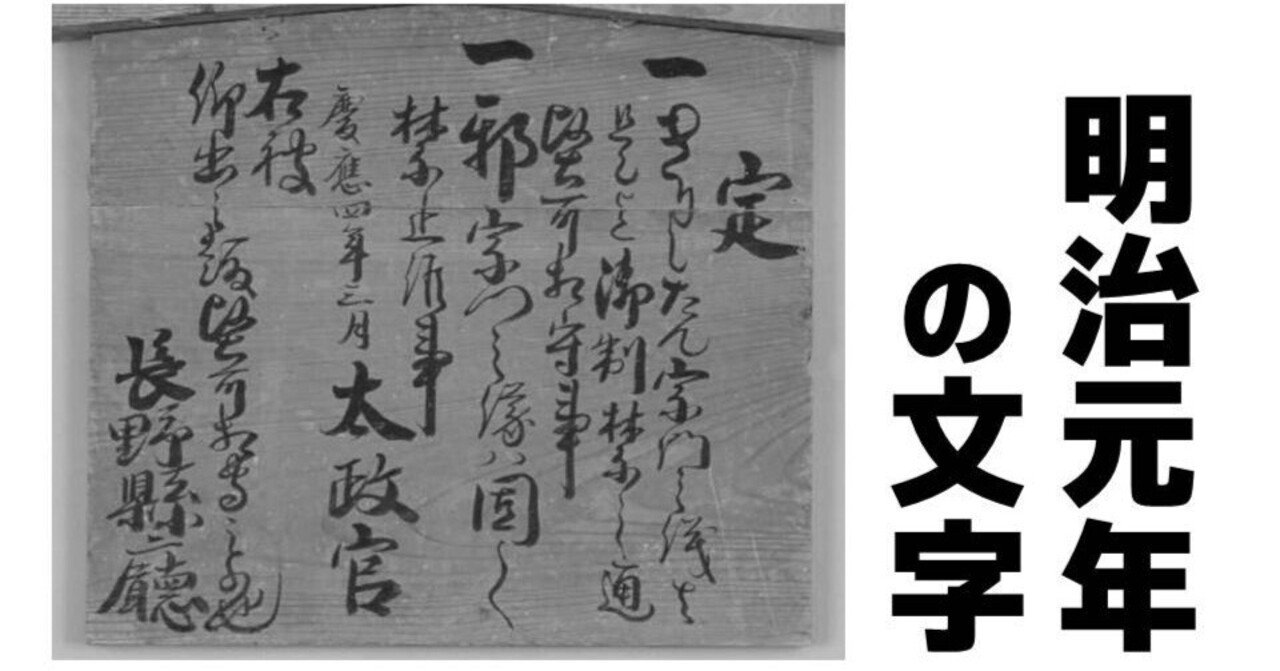 明治元年
の文字
定
一きりしたん宗門之儀は
是迄御制禁之通
堅可相守事
一邪宗門之儀ハ固く
禁止候事
慶應四年三月 太政官
右被
仰出之趣堅可相守もの也
長野縣廳